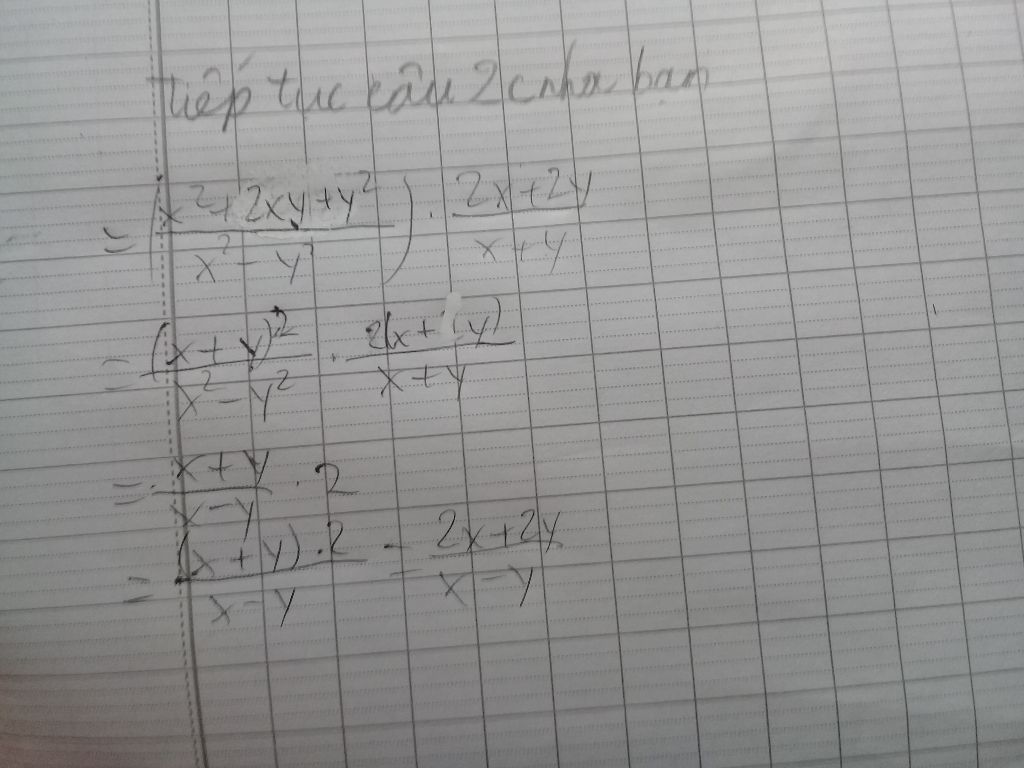 tiếp tục câu 2c nha bạn
= (x² + 2xy + y² / x² - y²) . 2x + 2y / x + y
= (x + y)² / x² - y² . 2(x + y) / x + y
= x + y / x - y . 2
= (x + y) . 2 / x - y = 2x + 2y / x - y